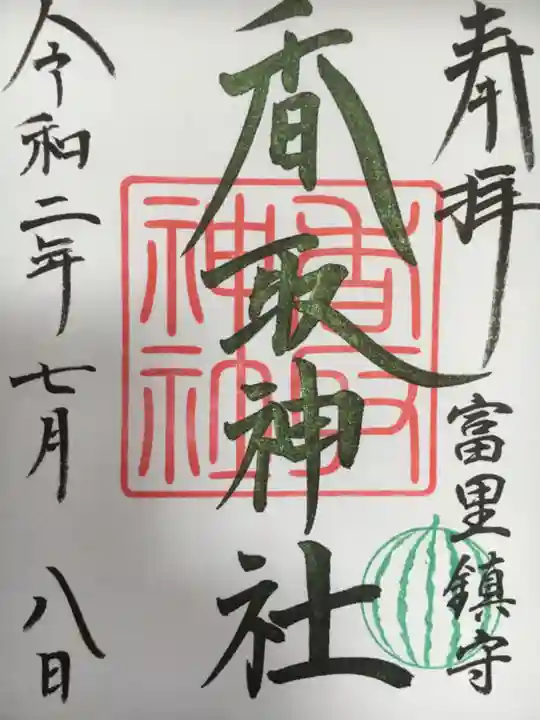 奉拝
富里鎮守
香取神社
香取
神社
令和二年七月八日